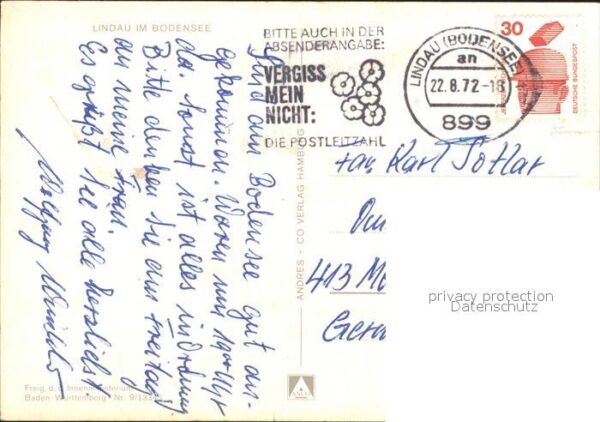 LINDAU IM BODENSEE
Sind am Bodensee gut an-
gekommen. Waren um 19⁰⁰ Uhr
da. Sonst ist alles in Ordnung
Bitte denken Sie am Freitag
an meine Frau.
Es grüßt Sie alle herzlichst
Wolfgang
Freig. d. d. Innenministerium
Baden-Württemberg Nr. 9/13
ANDRES + CO VERLAG HAMBURG
BITTE AUCH IN DER
ABSENDERANGABE:
VERGISS
MEIN
NICHT:
DIE POSTLEITZAHL
LINDAU (BODENSEE)
an
22.8.72-18
899
30
DEUTSCHE BUNDESPOST
Karl
413
privacy protection
Datenschutz